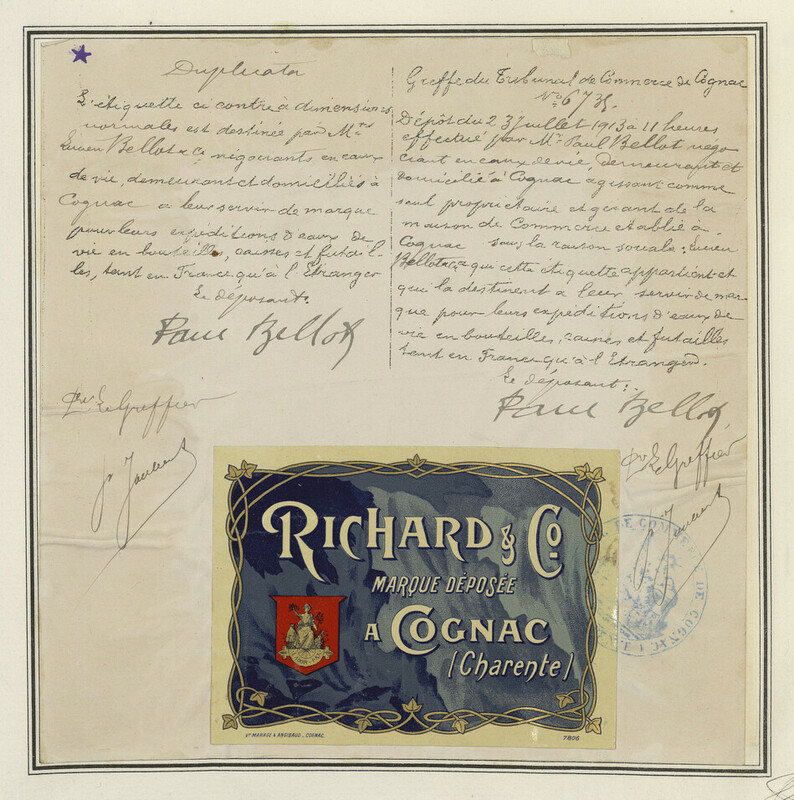 Duplicata
L'étiquette ci contre à dimensions
normales est destinée par Mrs
Lucien Bellot & Co négociants en eaux
de vie, demeurant et domiciliés à
Cognac a leur servir de marque
pour leurs expéditions d'eaux de
vie en bouteilles, caisses et futail-
les, tant en France qu'à l'Etranger
Le déposant:
Paul Bellot
Pr Le Greffier
Greffe du Tribunal de Commerce de Cognac
No 6735.
Dépôt du 23 Juillet 1913 à 11 heures
effectué par Mr Paul Bellot négo
ciant en eaux de vie, demeurant et
domicilié à Cognac agissant comme
seul propriétaire et gérant de la
maison de Commerce établie à
Cognac sous la raison sociale: Lucien
Bellot & Co qui cette étiquette appartient et
qui la destinent à leur servir de mar
que pour leurs expéditions d'eaux de
vie en bouteilles, caisses et futailles
tant en France qu'à l'Etranger.
Le déposant:
Paul Bellot
Pr Le Greffier
RICHARD & Co
MARQUE DÉPOSÉE
A COGNAC
(Charente)
Vve MARIAGE & RAIMBAUD, COGNAC.
7806
DE COMMERCE DE COGNAC